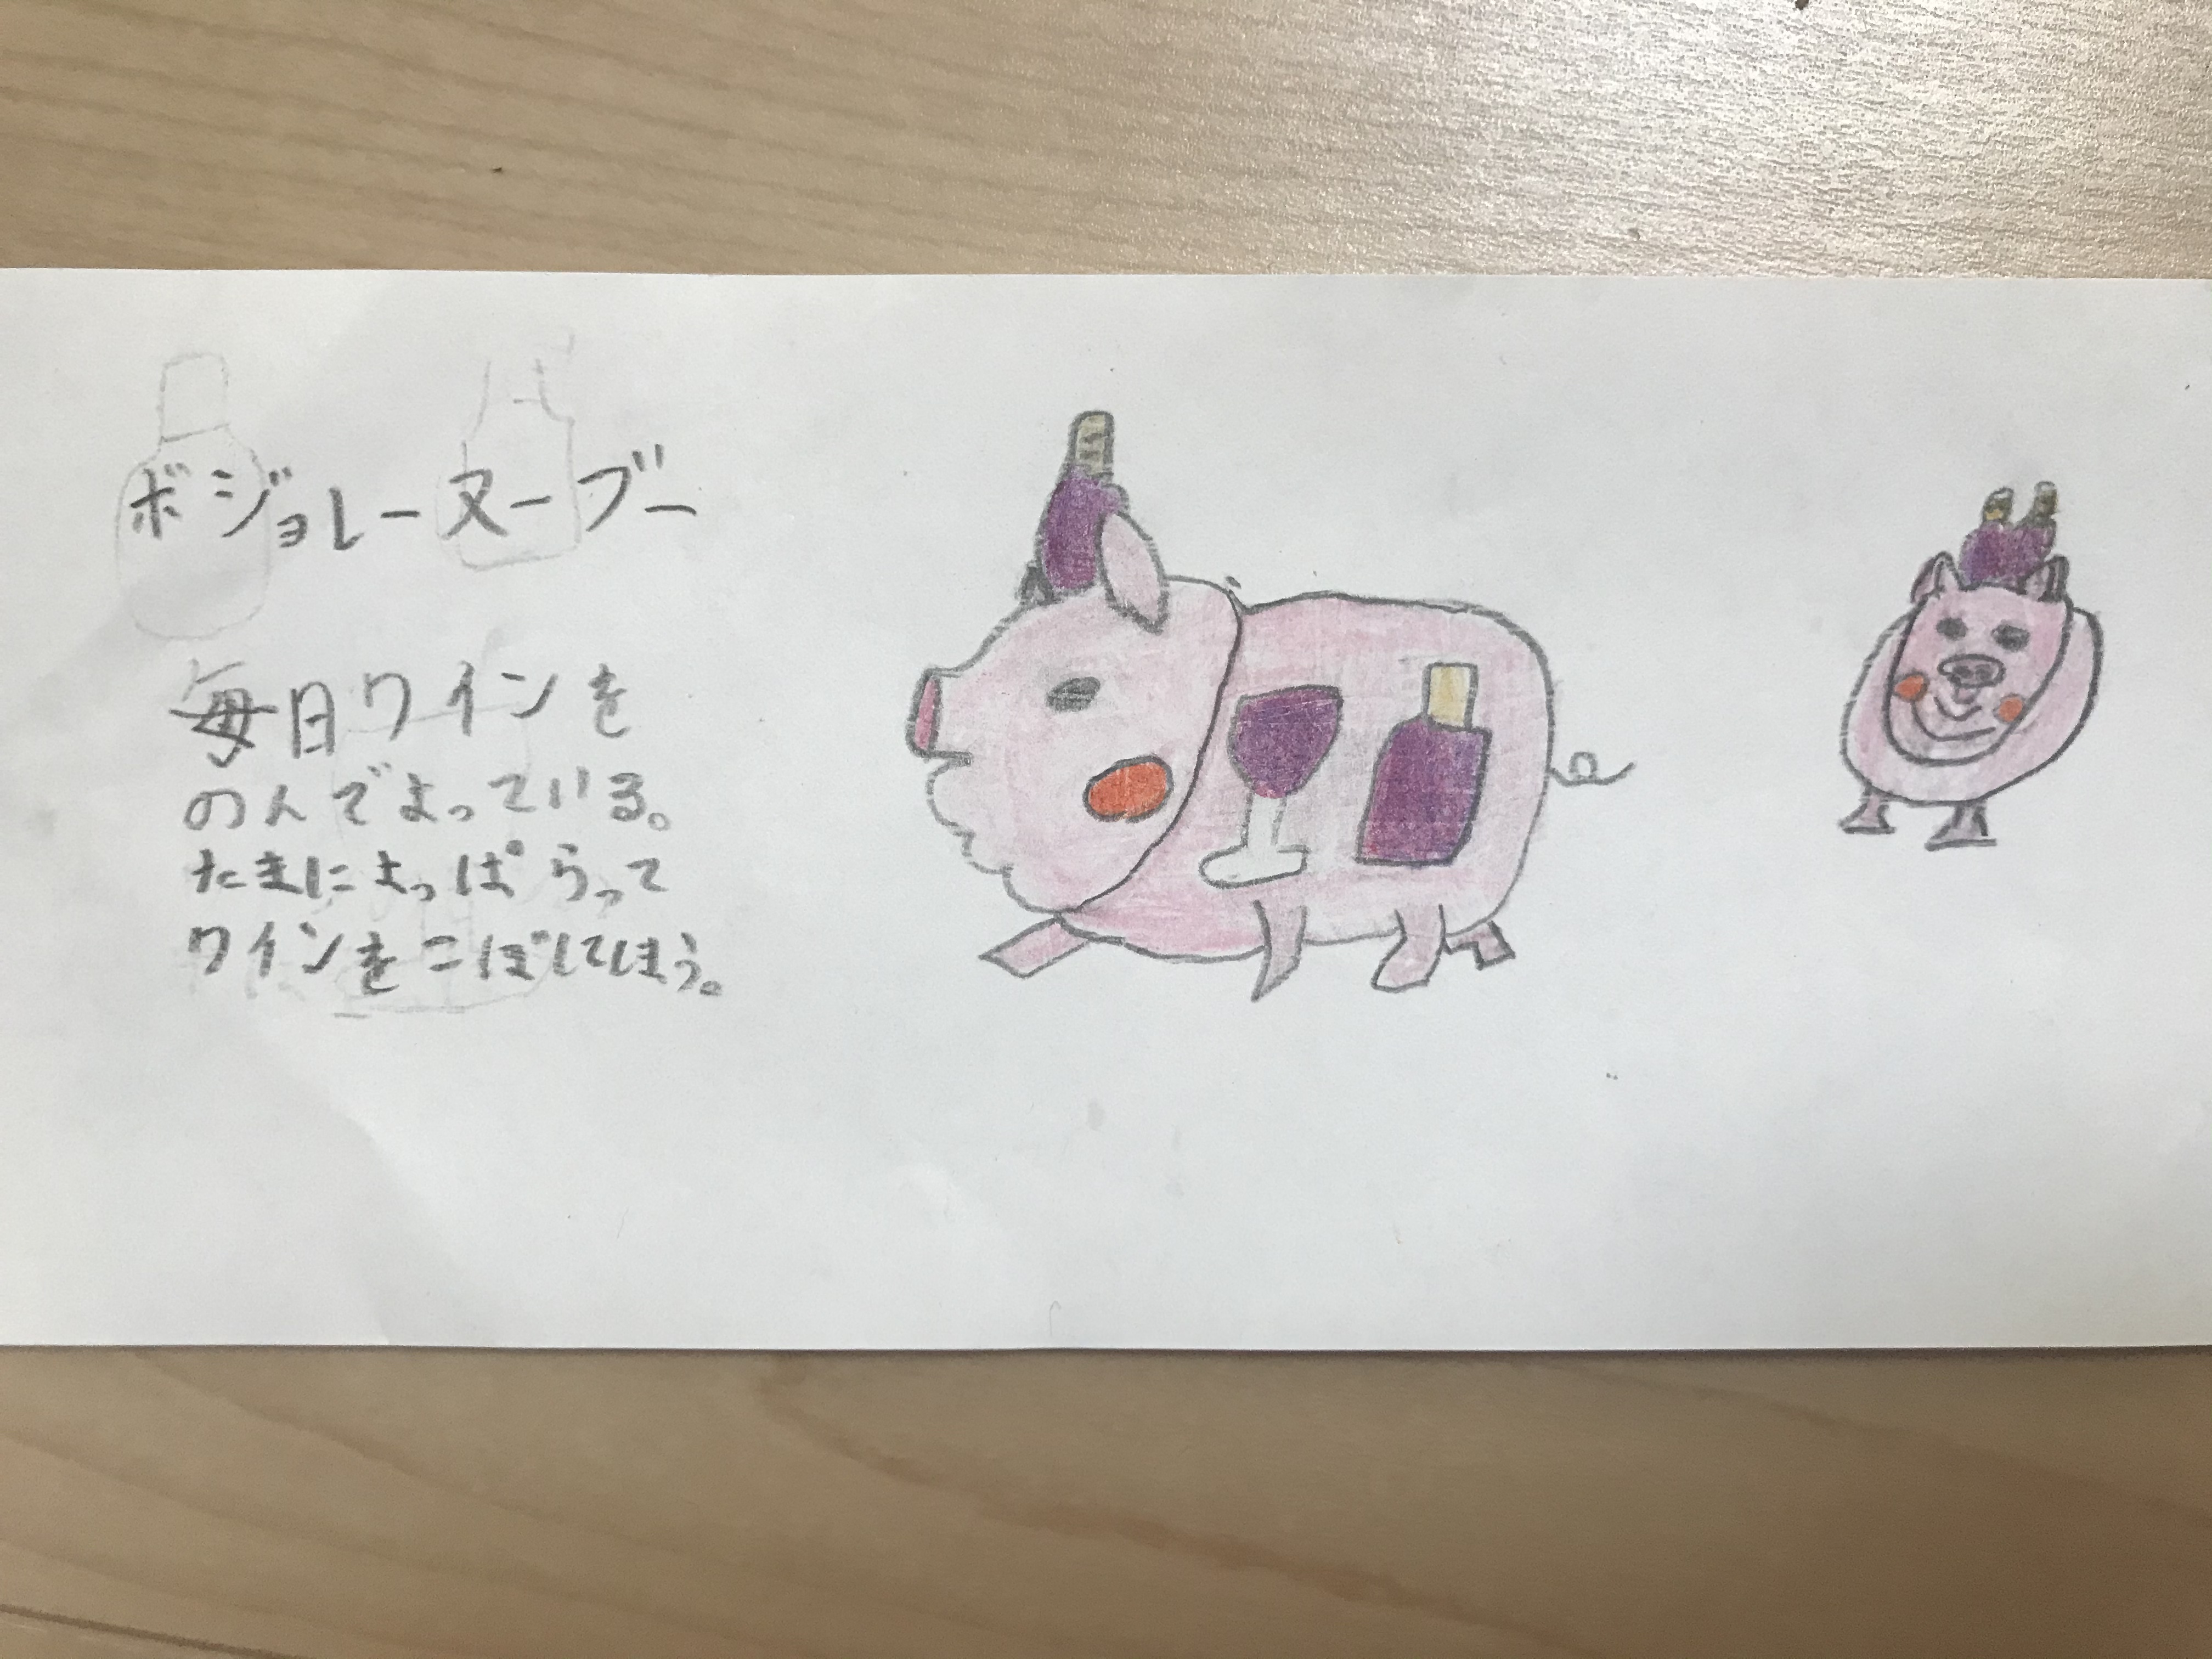 ボジョレーヌーブー
毎日ワインを
のんでよっている。
たまによっぱらって
ワインをこぼしてしまう。